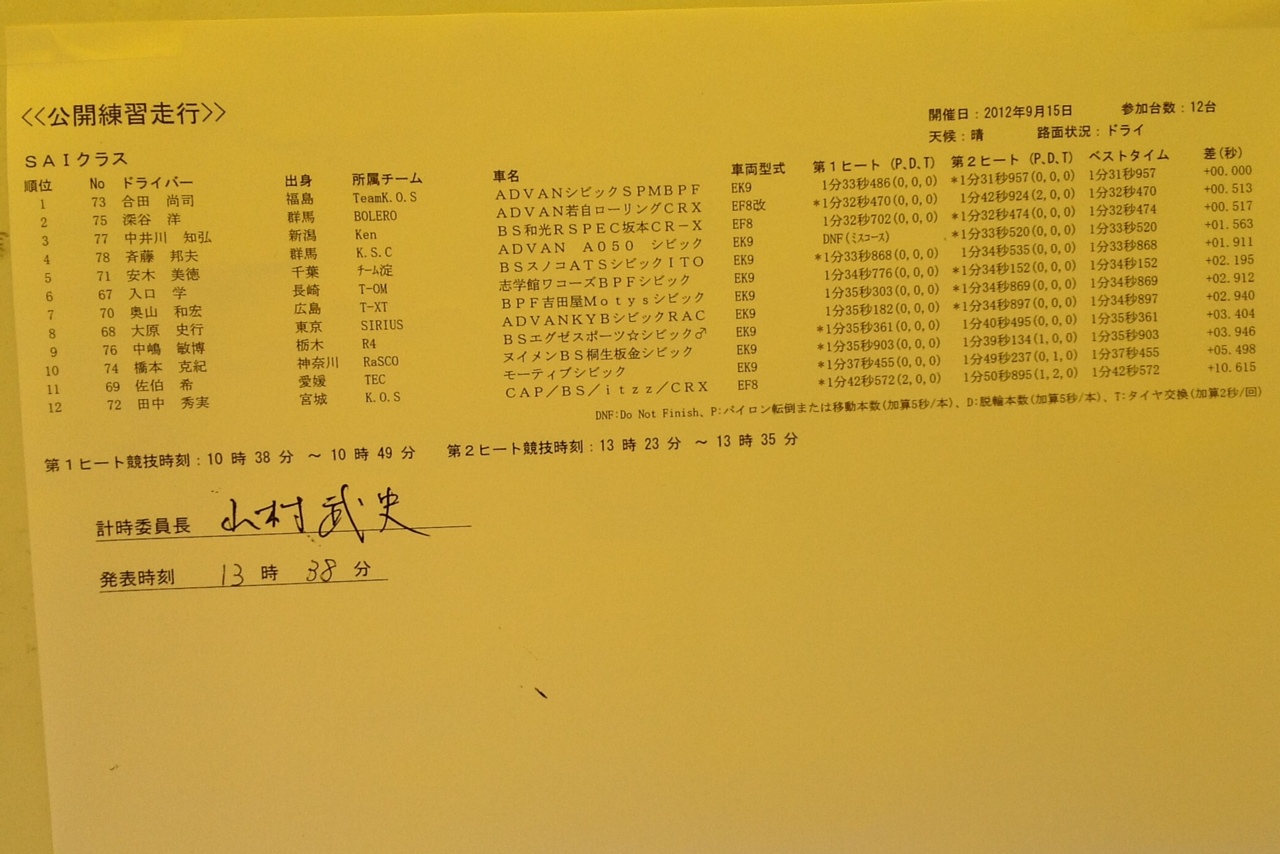 <<公開練習走行>>
開催日：2012年9月15日 参加台数：12台
天候：晴 路面状況：ドライ
ＳＡＩクラス
順位 No ドライバー 出身 所属チーム 車名 車両型式 第１ヒート（P,D,T） 第２ヒート（P,D,T） ベストタイム 差(秒)
1 73 合田 尚司 福島 TeamK.O.S ＡＤＶＡＮシビックＳＰＭＢＰＦ EK9 1分33秒486(0,0,0) *1分31秒957(0,0,0) 1分31秒957 +00.000
2 75 深谷 洋 群馬 BOLERO ＡＤＶＡＮ若自ローリングＣＲＸ EF8改 *1分32秒470(0,0,0) 1分42秒924(2,0,0) 1分32秒470 +00.513
3 77 中井川 知弘 新潟 Ken ＢＳ和光ＲＳＰＥＣ坂本ＣＲ－Ｘ EF8 1分32秒702(0,0,0) *1分32秒474(0,0,0) 1分32秒474 +00.517
4 78 斉藤 邦夫 群馬 K.S.C ＡＤＶＡＮ Ａ０５０ シビック EK9 DNF(ﾐｽｺｰｽ) *1分33秒520(0,0,0) 1分33秒520 +01.563
5 71 安木 美徳 千葉 ﾁｰﾑ淀 ＢＳスノコＡＴＳシビックＩＴＯ EK9 *1分33秒868(0,0,0) 1分34秒535(0,0,0) 1分33秒868 +01.911
6 67 入口 学 長崎 T-OM 志学館ワコーズＢＰＦシビック EK9 1分34秒776(0,0,0) *1分34秒152(0,0,0) 1分34秒152 +02.195
7 70 奥山 和宏 広島 T-XT ＢＰＦ吉田屋Ｍｏｔｙｓシビック EK9 1分35秒303(0,0,0) *1分34秒869(0,0,0) 1分34秒869 +02.912
8 68 大原 史行 東京 SIRIUS ＡＤＶＡＮＫＹＢシビックＲＡＣ EK9 1分35秒182(0,0,0) *1分34秒897(0,0,0) 1分34秒897 +02.940
9 76 中嶋 敏博 栃木 R4 ＢＳエグゼスポーツ☆シビック♂ EK9 *1分35秒361(0,0,0) 1分40秒495(0,0,0) 1分35秒361 +03.404
10 74 橋本 克紀 神奈川 RaSCO ヌイメンＢＳ桐生板金シビック EK9 *1分35秒903(0,0,0) 1分39秒134(1,0,0) 1分35秒903 +03.946
11 69 佐伯 希 愛媛 TEC モーティブシビック EK9 *1分37秒455(0,0,0) 1分49秒237(0,1,0) 1分37秒455 +05.498
12 72 田中 秀実 宮城 K.O.S ＣＡＰ／ＢＳ／ｉｔｚｚ／ＣＲＸ EF8 *1分42秒572(2,0,0) 1分50秒895(1,2,0) 1分42秒572 +10.615
DNF:Do Not Finish、P:パイロン転倒または移動本数(加算5秒/本)、D:脱輪本数(加算5秒/本)、T:タイヤ交換(加算2秒/回)
第１ヒート競技時刻：10 時 38 分 ～ 10 時 49 分 第２ヒート競技時刻：13 時 23 分 ～ 13 時 35 分
計時委員長 山村武史
発表時刻 13 時 38 分